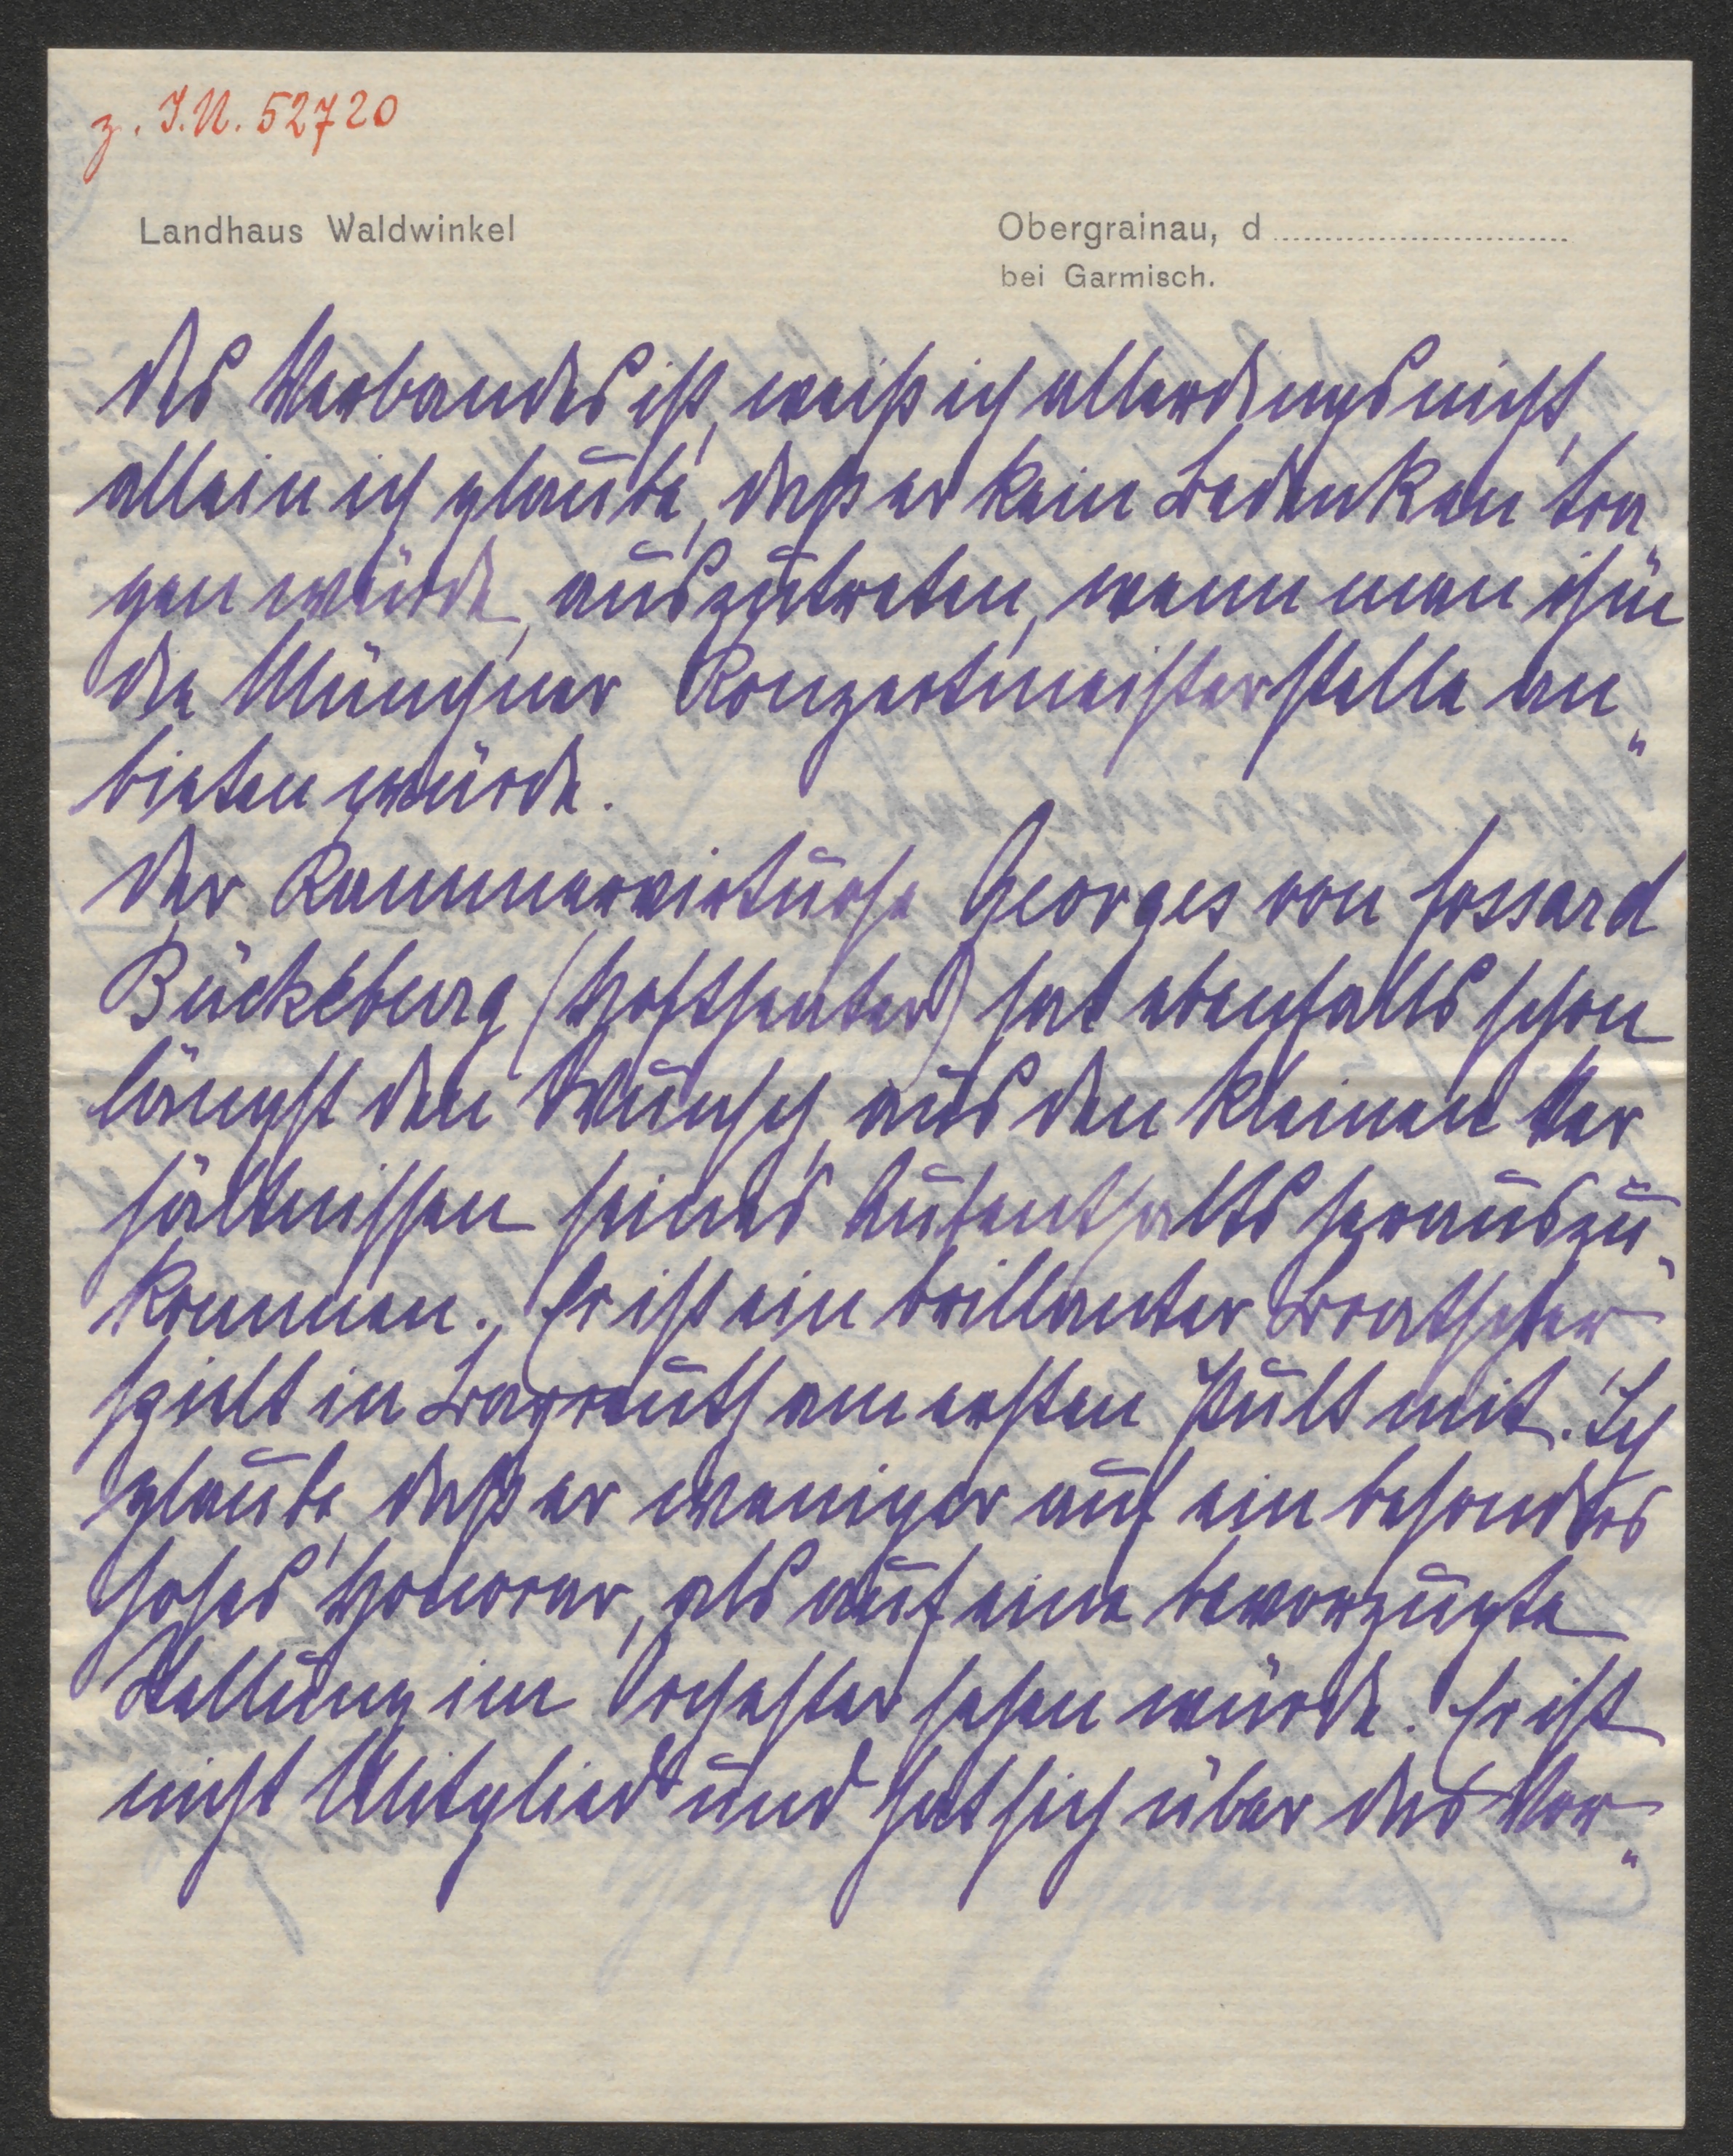 z. I.N. 52720
Landhaus Waldwinkel
Obergrainau, d
bei Garmisch.
des Verbandes ist, weiß ich allerdings nicht,
allein ich glaube, daß er kein Bedenken tra
gen würde, auszutreten, wenn man ihm
die Münchner Konzertmeisterstelle an„
bieten würde.
Der Kammervirtuose Georges von Fossard
Bückeburg (Hoftheater) hat ebenfalls schon
längst den Wunsch, aus den kleinen Ver
hältnissen seines Aufenthalts herauszu„
kommen. Er ist ein brillanter Bratscher
spielt in Bayreuth am ersten Pult mit. Ich
glaube, daß er weniger auf ein besonders
hohes Honorar, als auf eine bevorzugte
Stellung im Orchester sehen würde. Er ist
nicht Mitglied und hat sich über das Vor„